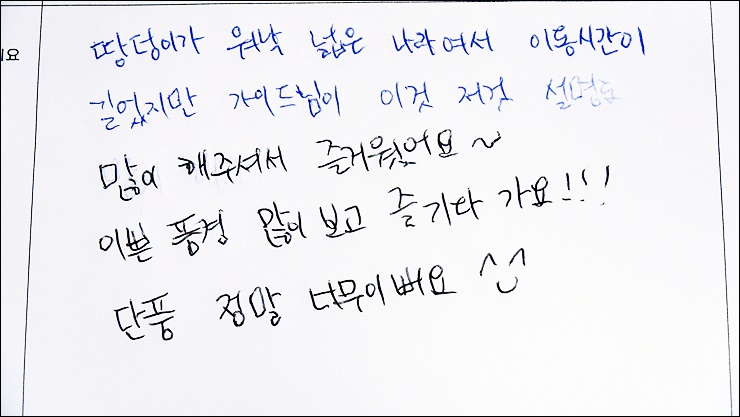 이요
땅덩이가 워낙 넓은 나라여서 이동시간이
길었지만 가이드님이 이것 저것 설명도
많이 해주셔서 즐거웠어요~
이쁜 풍경 많이 보고 즐기다 가요!!!
단풍 정말 너무이뻐요 ^^